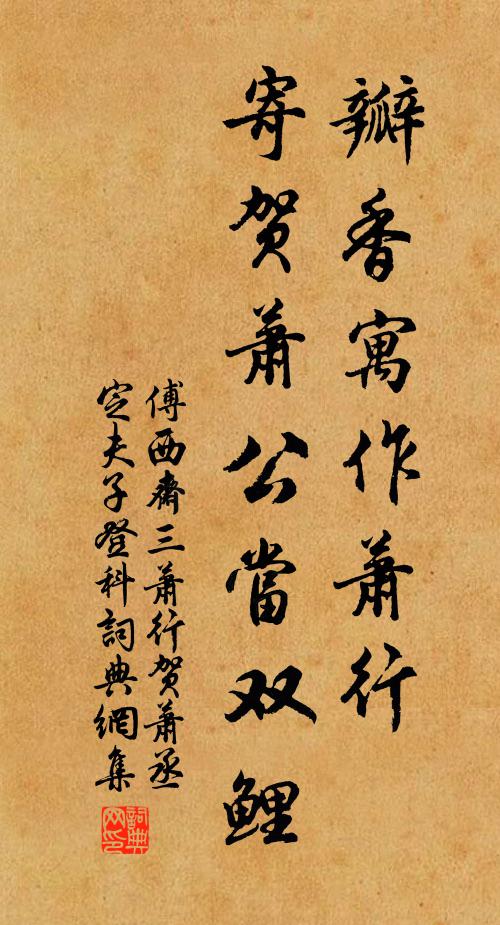 瓣香寓作萧行
寄贺萧公當双鲤
傅西齋三萧行贺萧丞
定夫子登科詞典網集
詞典网印